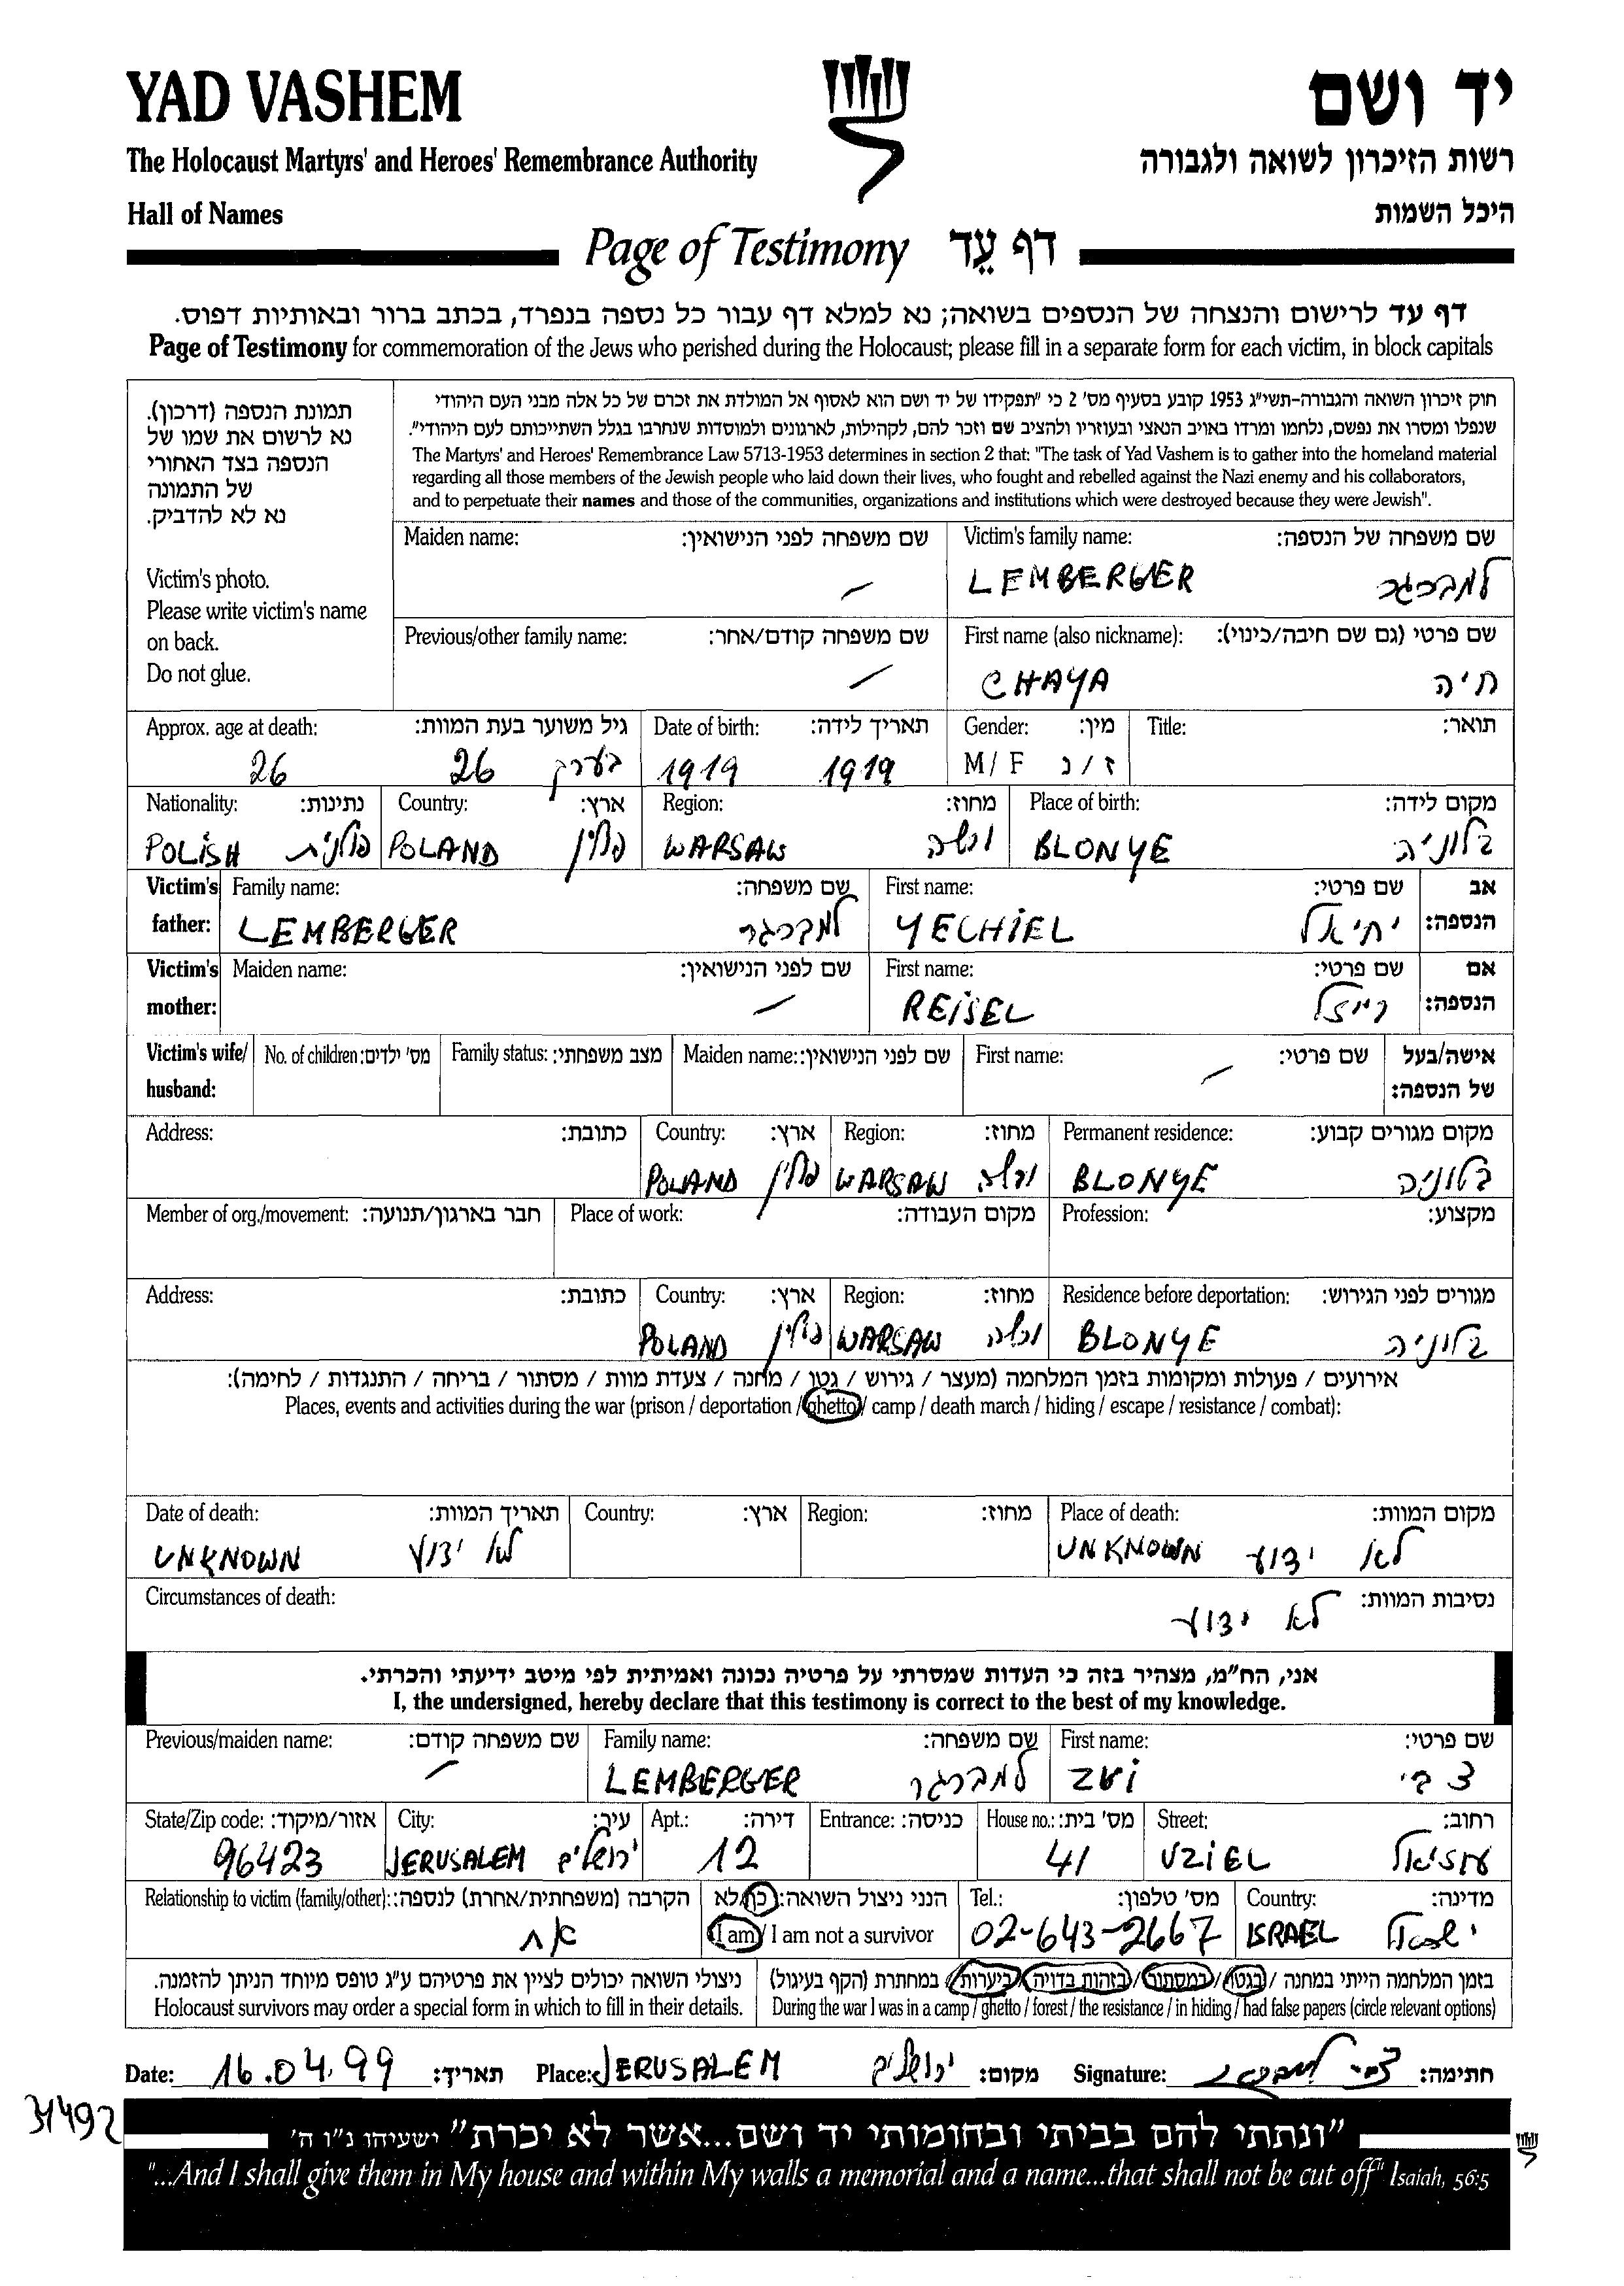 YAD VASHEM
יד ושם
The Holocaust Martyrs' and Heroes' Remembrance Authority
רשות הזיכרון לשואה ולגבורה
Hall of Names
היכל השמות
Page of Testimony דף עֵד
דף עד לרישום והנצחה של הנספים בשואה; נא למלא דף עבור כל נספה בנפרד, בכתב ברור ובאותיות דפוס.
Page of Testimony for commemoration of the Jews who perished during the Holocaust; please fill in a separate form for each victim, in block capitals
תמונת הנספה (דרכון).
נא לרשום את שמו של
הנספה בצד האחורי
של התמונה
נא לא להדביק.
Victim's photo.
Please write victim's name
on back.
Do not glue.
חוק זיכרון השואה והגבורה-תשי"ג 1953 קובע בסעיף מס' 2 כי "תפקידו של יד ושם הוא לאסוף אל המולדת את זכרם של כל אלה מבני העם היהודי
שנפלו ומסרו את נפשם, נלחמו ומרדו באויב הנאצי ובעוזריו ולהציב שם וזכר להם, לקהילות, לארגונים ולמוסדות שנחרבו בגלל השתייכותם לעם היהודי".
The Martyrs' and Heroes' Remembrance Law 5713-1953 determines in section 2 that: "The task of Yad Vashem is to gather into the homeland material
regarding all those members of the Jewish people who laid down their lives, who fought and rebelled against the Nazi enemy and his collaborators,
and to perpetuate their names and those of the communities, organizations and institutions which were destroyed because they were Jewish".
Maiden name: שם משפחה לפני הנישואין: Victim's family name: שם משפחה של הנספה:
LEMBERGER למברגר
Previous/other family name: שם משפחה קודם/אחר: First name (also nickname): שם פרטי (גם שם חיבה/כינוי):
CHAYA חיה
Approx. age at death: גיל משוער בעת המוות: Date of birth: תאריך לידה: Gender: מין: Title: תואר:
26 26 בערך 1919 1919 M / F ז / נ
Nationality: נתינות: Country: ארץ: Region: מחוז: Place of birth: מקום לידה:
POLISH פולנית POLAND פולין WARSAW ורשה BLONYE בלוניה
Victim's Family name: שם משפחה: First name: שם פרטי: אב
father: LEMBERGER למברגר YECHIEL יחיאל הנספה:
Victim's Maiden name: שם לפני הנישואין: First name: שם פרטי: אם
mother: REISEL רייזל הנספה:
Victim's wife/ No. of children: מס' ילדים: Family status: מצב משפחתי: Maiden name: שם לפני הנישואין: First name: שם פרטי: אישה/בעל
husband: של הנספה:
Address: כתובת: Country: ארץ: Region: מחוז: Permanent residence: מקום מגורים קבוע:
POLAND פולין WARSAW ורשה BLONYE בלוניה
Member of org./movement: חבר בארגון/תנועה: Place of work: מקום העבודה: Profession: מקצוע:
Address: כתובת: Country: ארץ: Region: מחוז: Residence before deportation: מגורים לפני הגירוש:
POLAND פולין WARSAW ורשה BLONYE בלוניה
אירועים / פעולות ומקומות בזמן המלחמה (מעצר / גירוש / גטו / מחנה / צעדת מוות / מסתור / בריחה / התנגדות / לחימה):
Places, events and activities during the war (prison / deportation / ghetto / camp / death march / hiding / escape / resistance / combat):
Date of death: תאריך המוות: Country: ארץ: Region: מחוז: Place of death: מקום המוות:
UNKNOWN לא ידוע UNKNOWN לא ידוע
Circumstances of death: נסיבות המוות:
לא ידוע
אני, הח"מ, מצהיר בזה כי העדות שמסרתי על פרטיה נכונה ואמיתית לפי מיטב ידיעתי והכרתי.
I, the undersigned, hereby declare that this testimony is correct to the best of my knowledge.
Previous/maiden name: שם משפחה קודם: Family name: שם משפחה: First name: שם פרטי:
LEMBERGER למברגר ZVI צבי
State/Zip code: אזור/מיקוד: City: עיר: Apt.: דירה: Entrance: כניסה: House no.: מס' בית: Street: רחוב:
96423 JERUSALEM ירושלים 12 41 UZIEL עוזיאל
Relationship to victim (family/other): הקרבה (משפחתית/אחרת) לנספה: הנני ניצול השואה: כן/לא Tel.: מס' טלפון: Country: מדינה:
אח I am / I am not a survivor 02-643-2667 ISRAEL ישראל
ניצולי השואה יכולים לציין את פרטיהם ע"ג טופס מיוחד הניתן להזמנה. בזמן המלחמה הייתי במחנה / בגטו / במסתור / בזהות בדויה / ביערות / במחתרת (הקף בעיגול)
Holocaust survivors may order a special form in which to fill in their details. During the war I was in a camp / ghetto / forest / the resistance / in hiding / had false papers (circle relevant options)
Date: 16.04.99 תאריך: Place: JERUSALEM ירושלים מקום: Signature: צבי למברגר חתימה:
"ונתתי להם בביתי ובחומותי יד ושם...אשר לא יכרת" ישעיהו נ"ו ה'
"...And I shall give them in My house and within My walls a memorial and a name...that shall not be cut off" Isaiah, 56:5